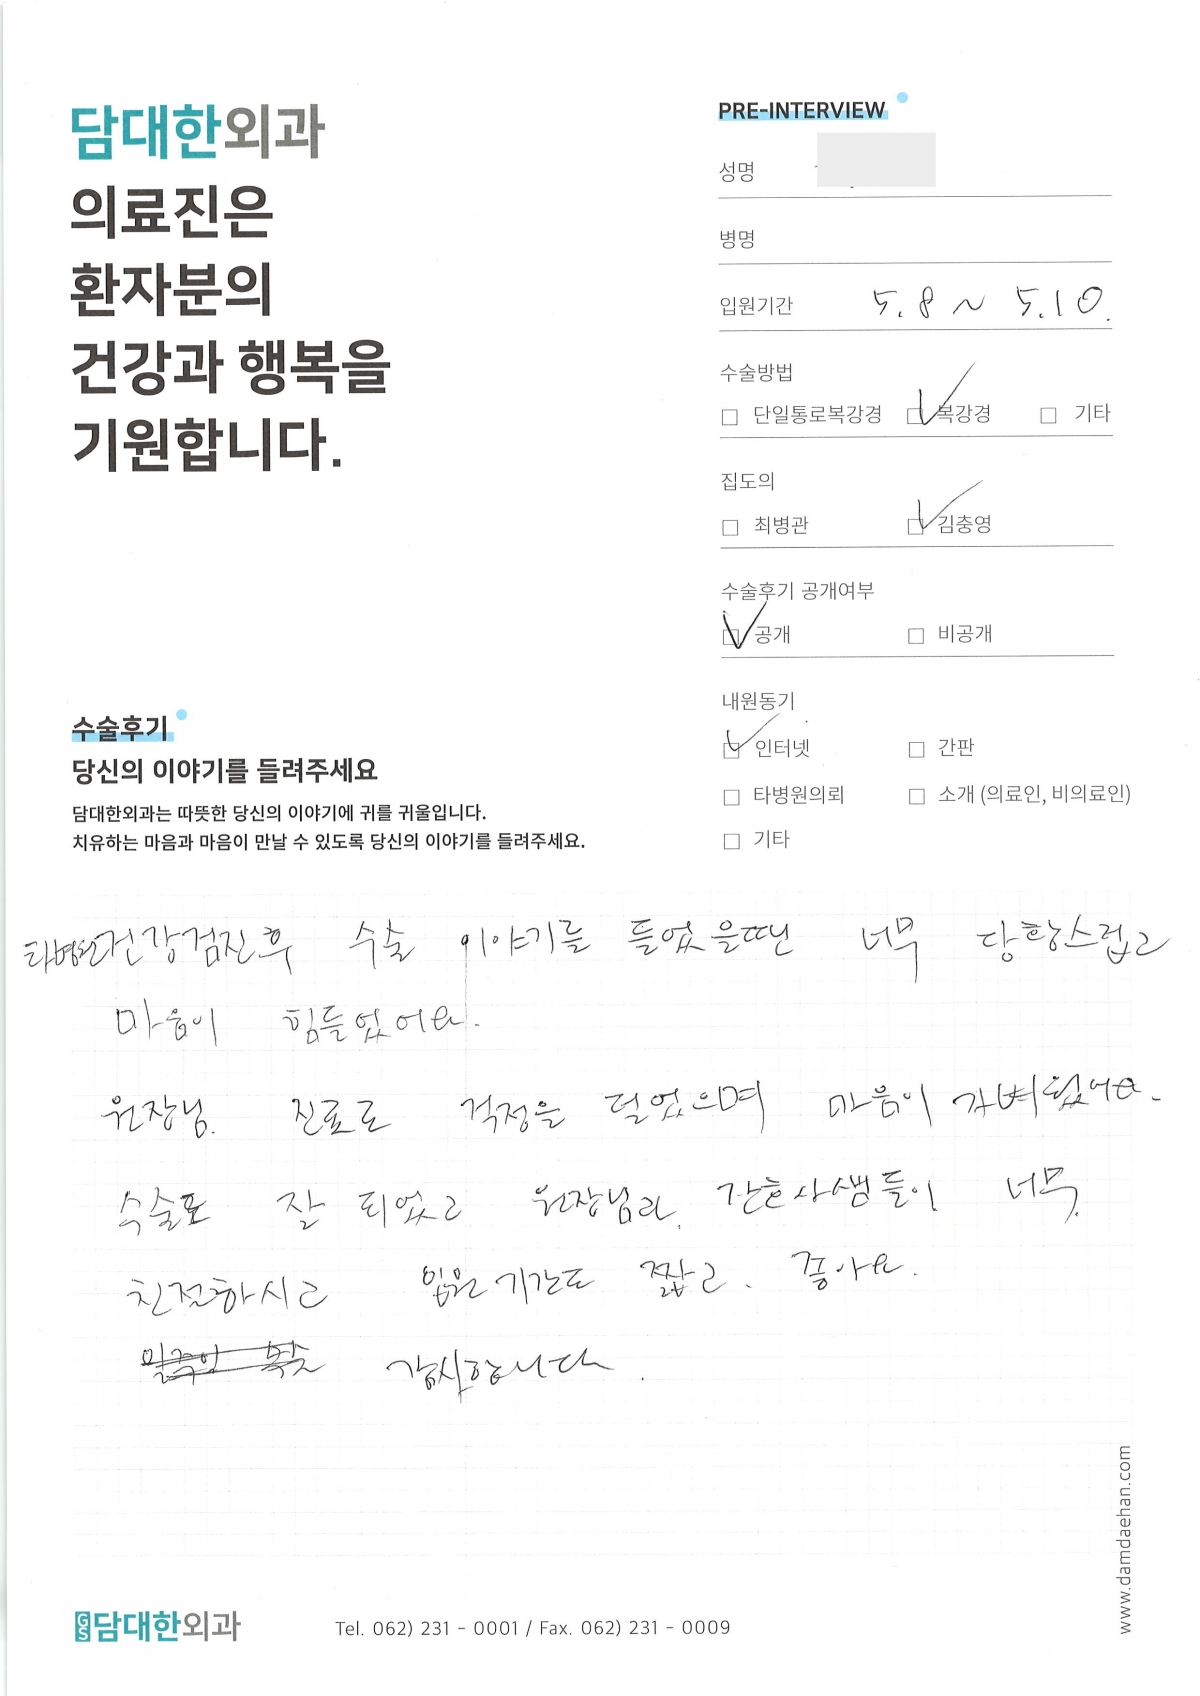 담대한외과
의료진은
환자분의
건강과 행복을
기원합니다.
PRE-INTERVIEW
성명
병명
입원기간 5.8 ~ 5.10.
수술방법
□ 단일통로복강경 ☑ 복강경 □ 기타
집도의
□ 최병관 ☑ 김충영
수술후기 공개여부
☑ 공개 □ 비공개
내원동기
☑ 인터넷 □ 간판
□ 타병원의뢰 □ 소개 (의료인, 비의료인)
□ 기타
수술후기
당신의 이야기를 들려주세요
담대한외과는 따뜻한 당신의 이야기에 귀를 귀울입니다.
치유하는 마음과 마음이 만날 수 있도록 당신의 이야기를 들려주세요.
타병원건강검진후 수술 이야기를 들었을때 너무 당황스럽고
마음이 힘들었어요.
원장님 진료로 걱정을 덜었으며 마음이 가벼웠어요.
수술도 잘 되었고 원장님과 간호사샘들이 너무
친절하시고 입원기간도 짧고. 좋아요.
감사합니다.
www.damdaehan.com
GS담대한외과
Tel. 062) 231 - 0001 / Fax. 062) 231 - 0009